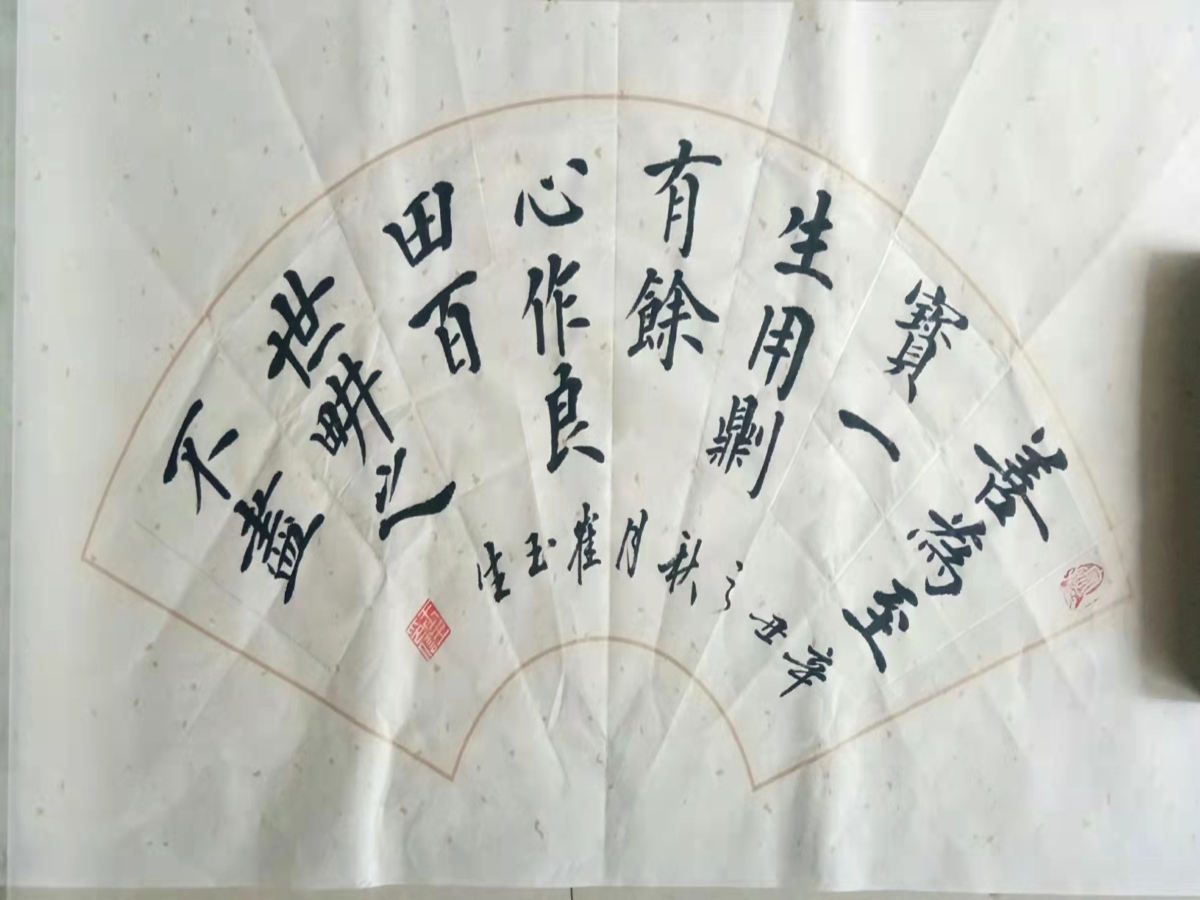 善為至
寶一
生用
有餘
心作良
田百
世畊之
不盡
辛丑之秋月崔玉生